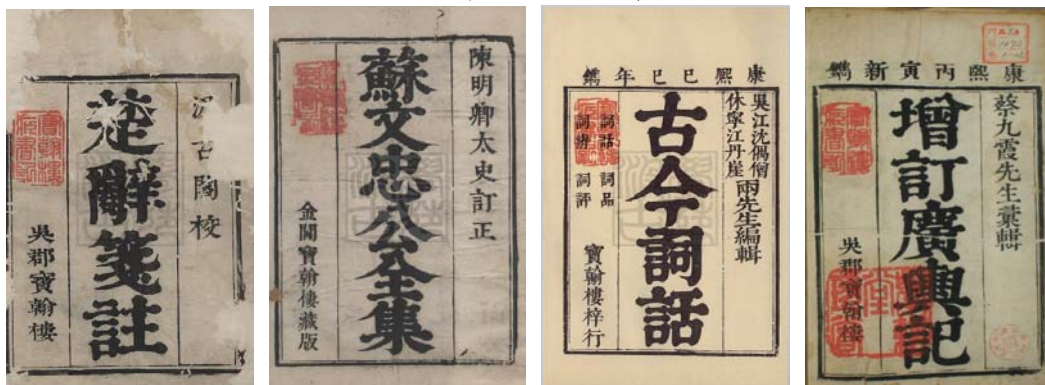 汲古閣校
楚辭箋註
吳郡寶翰樓
陳明卿太史訂正
蘇文忠公全集
金閶寶翰樓藏版
康熙己巳年鐫
吳江沈偶僧
休寧江丹崖
兩先生編輯
古今詞話
詞話 詞品
詞辨 詞評
寶翰樓梓行
康熙丙寅新鐫
蔡九霞先生彙輯
增訂廣輿記
吳郡寶翰樓